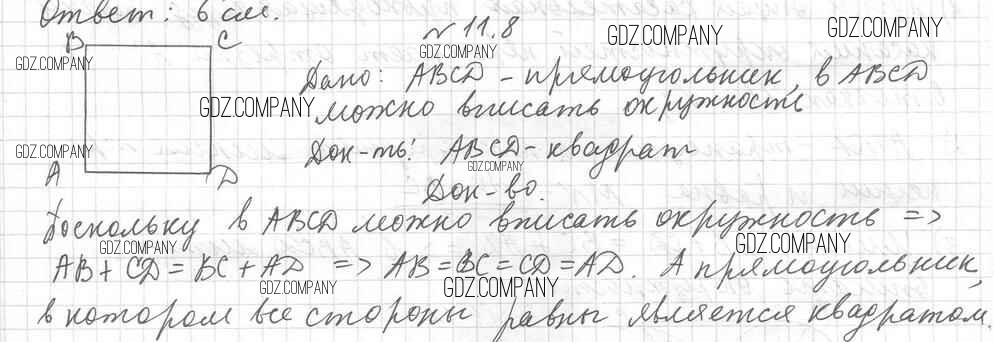 Ответ: 6 см.
№ 11.8
GDZ.COMPANY
GDZ.COMPANY
GDZ.COMPANY
B C
GDZ.COMPANY
Дано: ABCD - прямоугольник, в ABCD
GDZ.COMPANY можно вписать окружность
GDZ.COMPANY
A D
Док-ть: ABCD - квадрат
GDZ.COMPANY
Док-во.
Поскольку в ABCD можно вписать окружность =>
GDZ.COMPANY
GDZ.COMPANY
AB + CD = BC + AD => AB = BC = CD = AD. А прямоугольник,
GDZ.COMPANY
GDZ.COMPANY
в котором все стороны равны является квадратом.